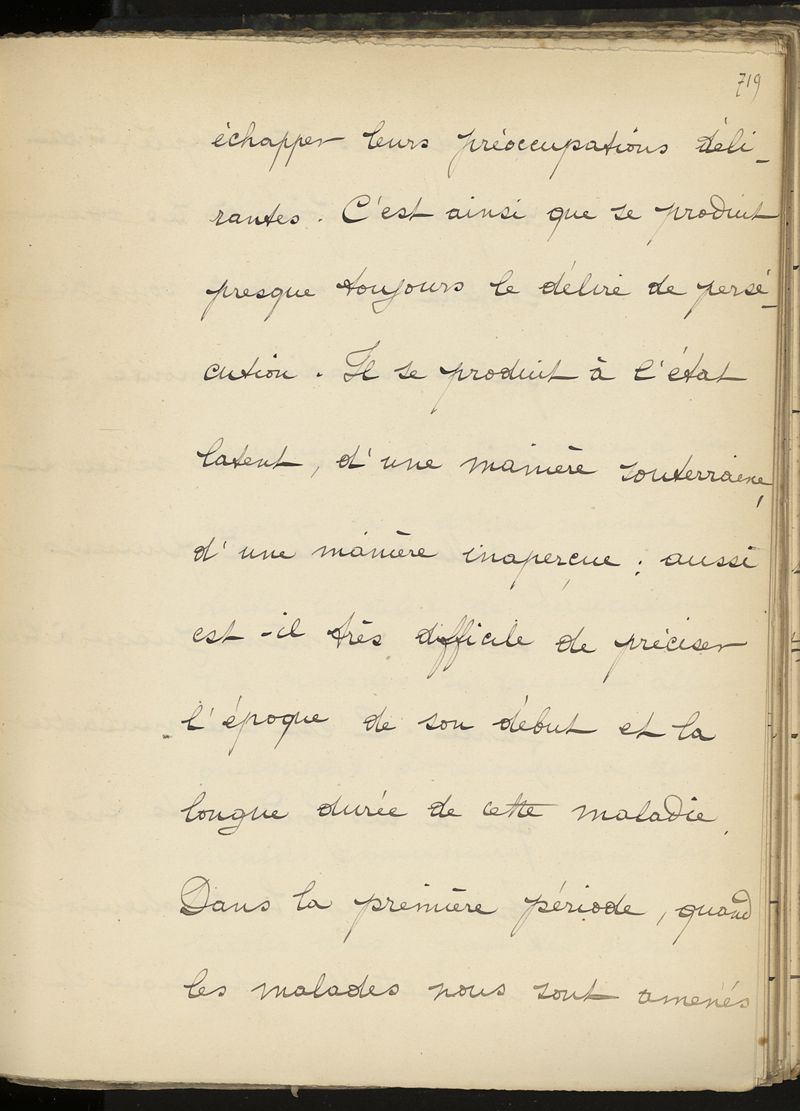 719
échapper leurs préoccupations déli-
rantes. C'est ainsi que se produit
presque toujours le délire de persé-
cution. Il se produit à l'état
latent, d'une manière souterraine,
d'une manière inaperçue ; aussi
est-il très difficile de préciser
l'époque de son début et la
longue durée de cette maladie.
Dans la première période, quand
les malades nous sont amenés